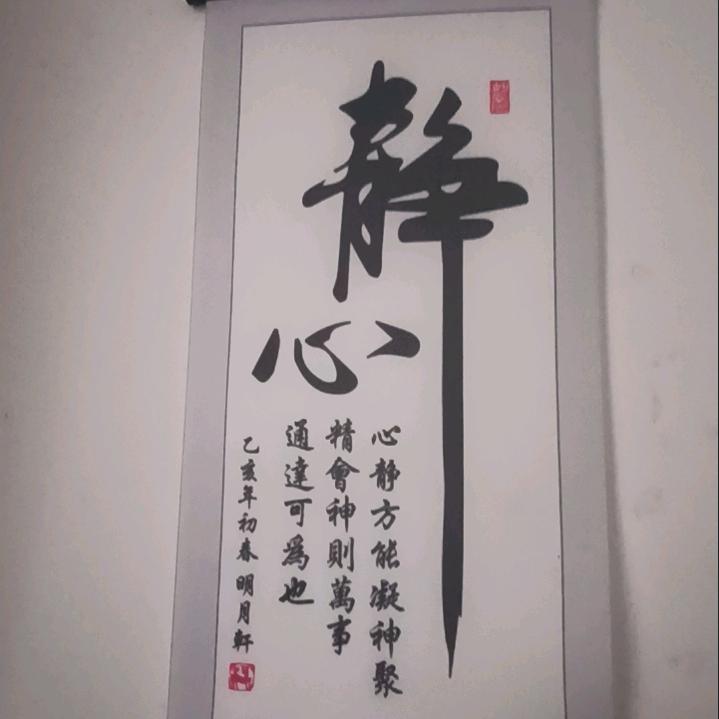 靜心
心静方能凝神聚
精會神則萬事
通達可為也
乙亥年初春明月軒